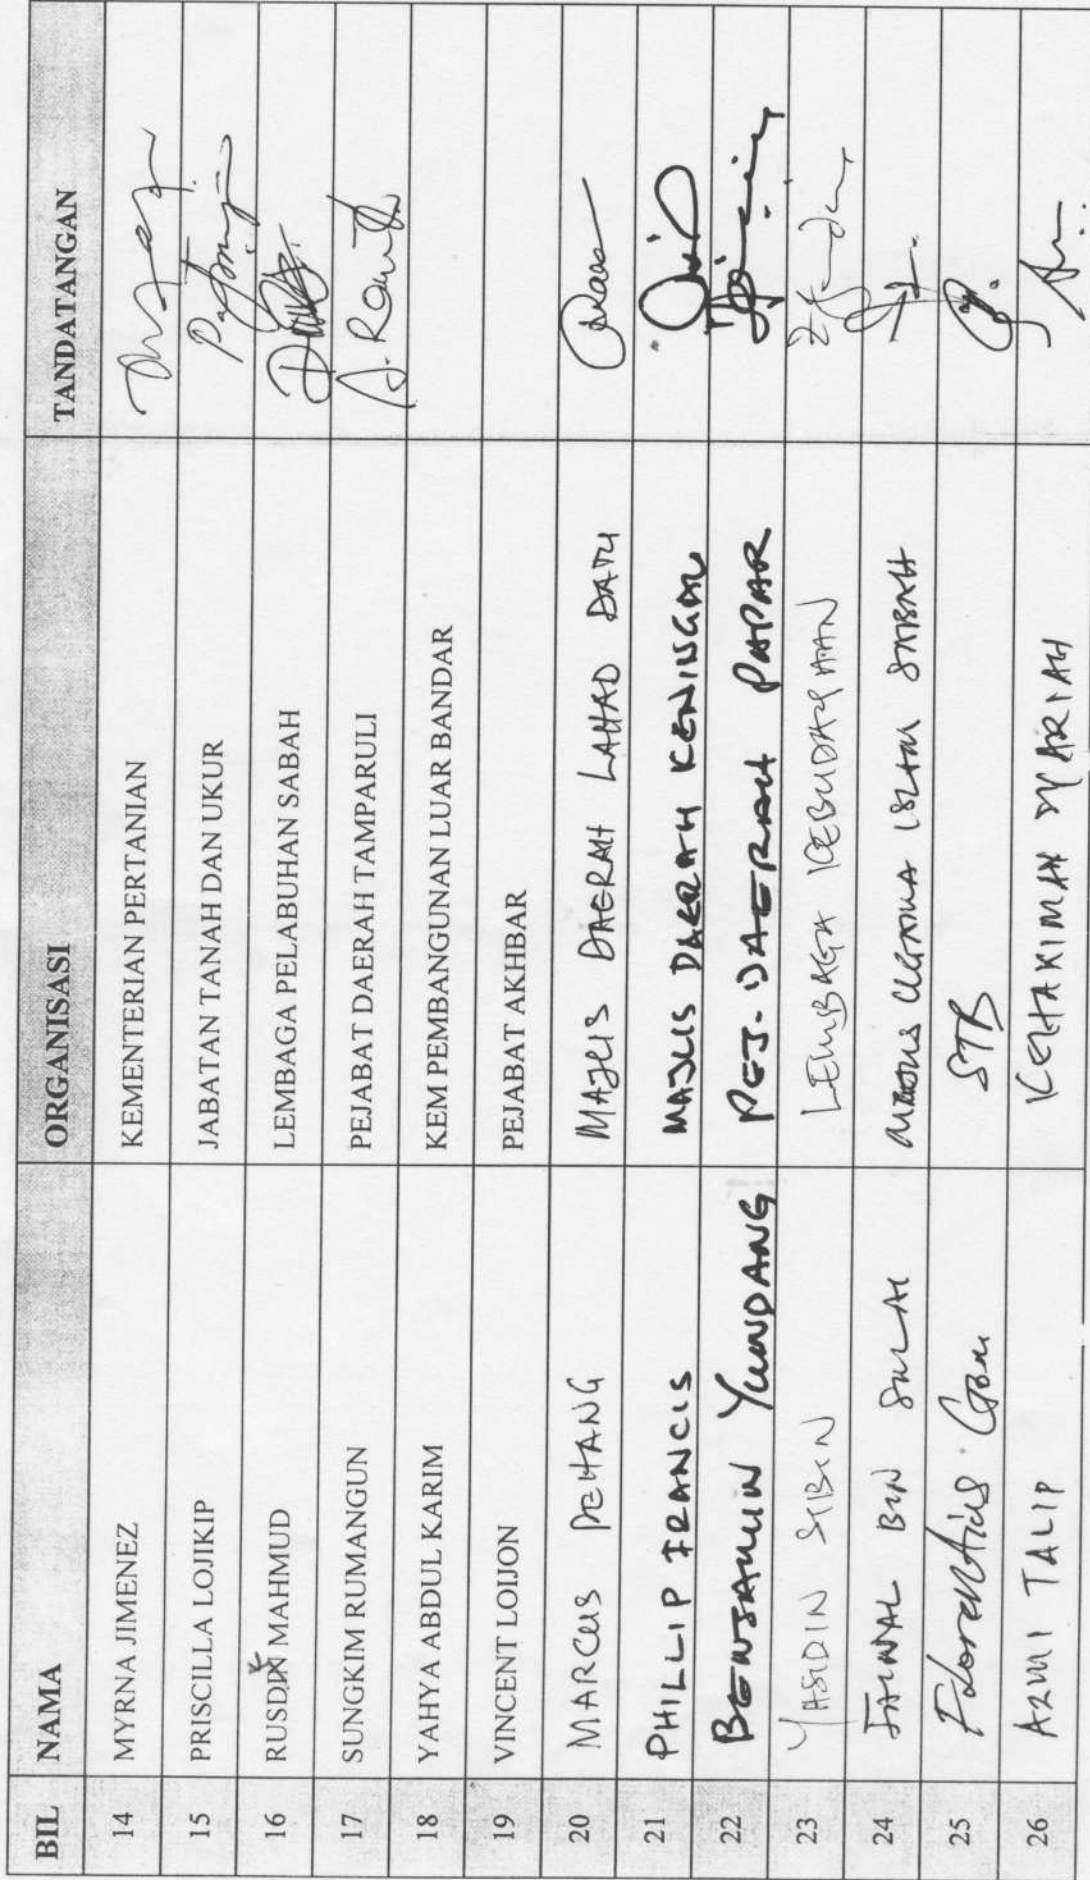 BIL NAMA ORGANISASI TANDATANGAN
14 MYRNA JIMENEZ KEMENTERIAN PERTANIAN
15 PRISCILLA LOJIKIP JABATAN TANAH DAN UKUR
16 RUSDIN MAHMUD LEMBAGA PELABUHAN SABAH
17 SUNGKIM RUMANGUN PEJABAT DAERAH TAMPARULI
18 YAHYA ABDUL KARIM KEM PEMBANGUNAN LUAR BANDAR
19 VINCENT LOIJON PEJABAT AKHBAR
20 MARCUS PEHANG MAJLIS DAERAH LAHAD DATU
21 PHILLIP FRANCIS MAJLIS DAERAH KENINGAU
22 BENJAMIN YUNDANG PEJ. DAERAH PAPAR
23 YASIDIN SIBIN LEMBAGA KEBUDAYAAN
24 JAINAL BIN UGAMA ISLAM SABAH
25 Florentius STB
26 AZMI TALIP KEHAKIMAN SYARIAH